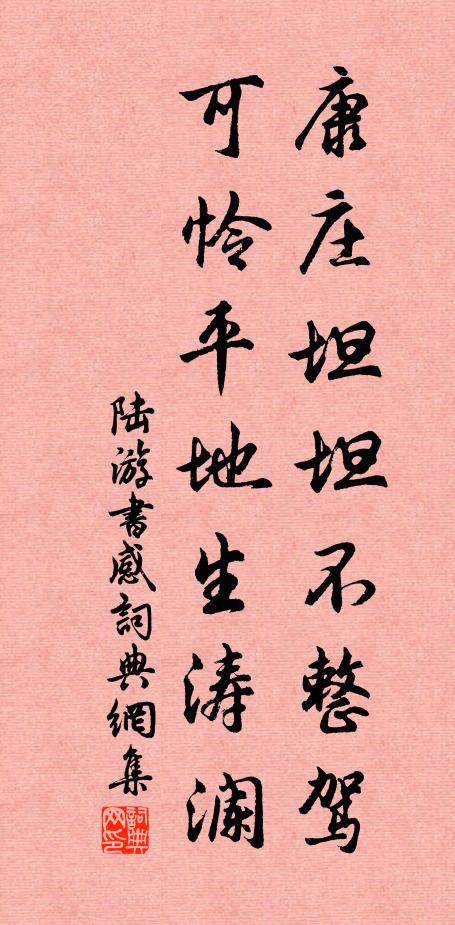 康庄坦坦不整驾
可怜平地生涛澜
陆游书感詞典網集
詞典网印